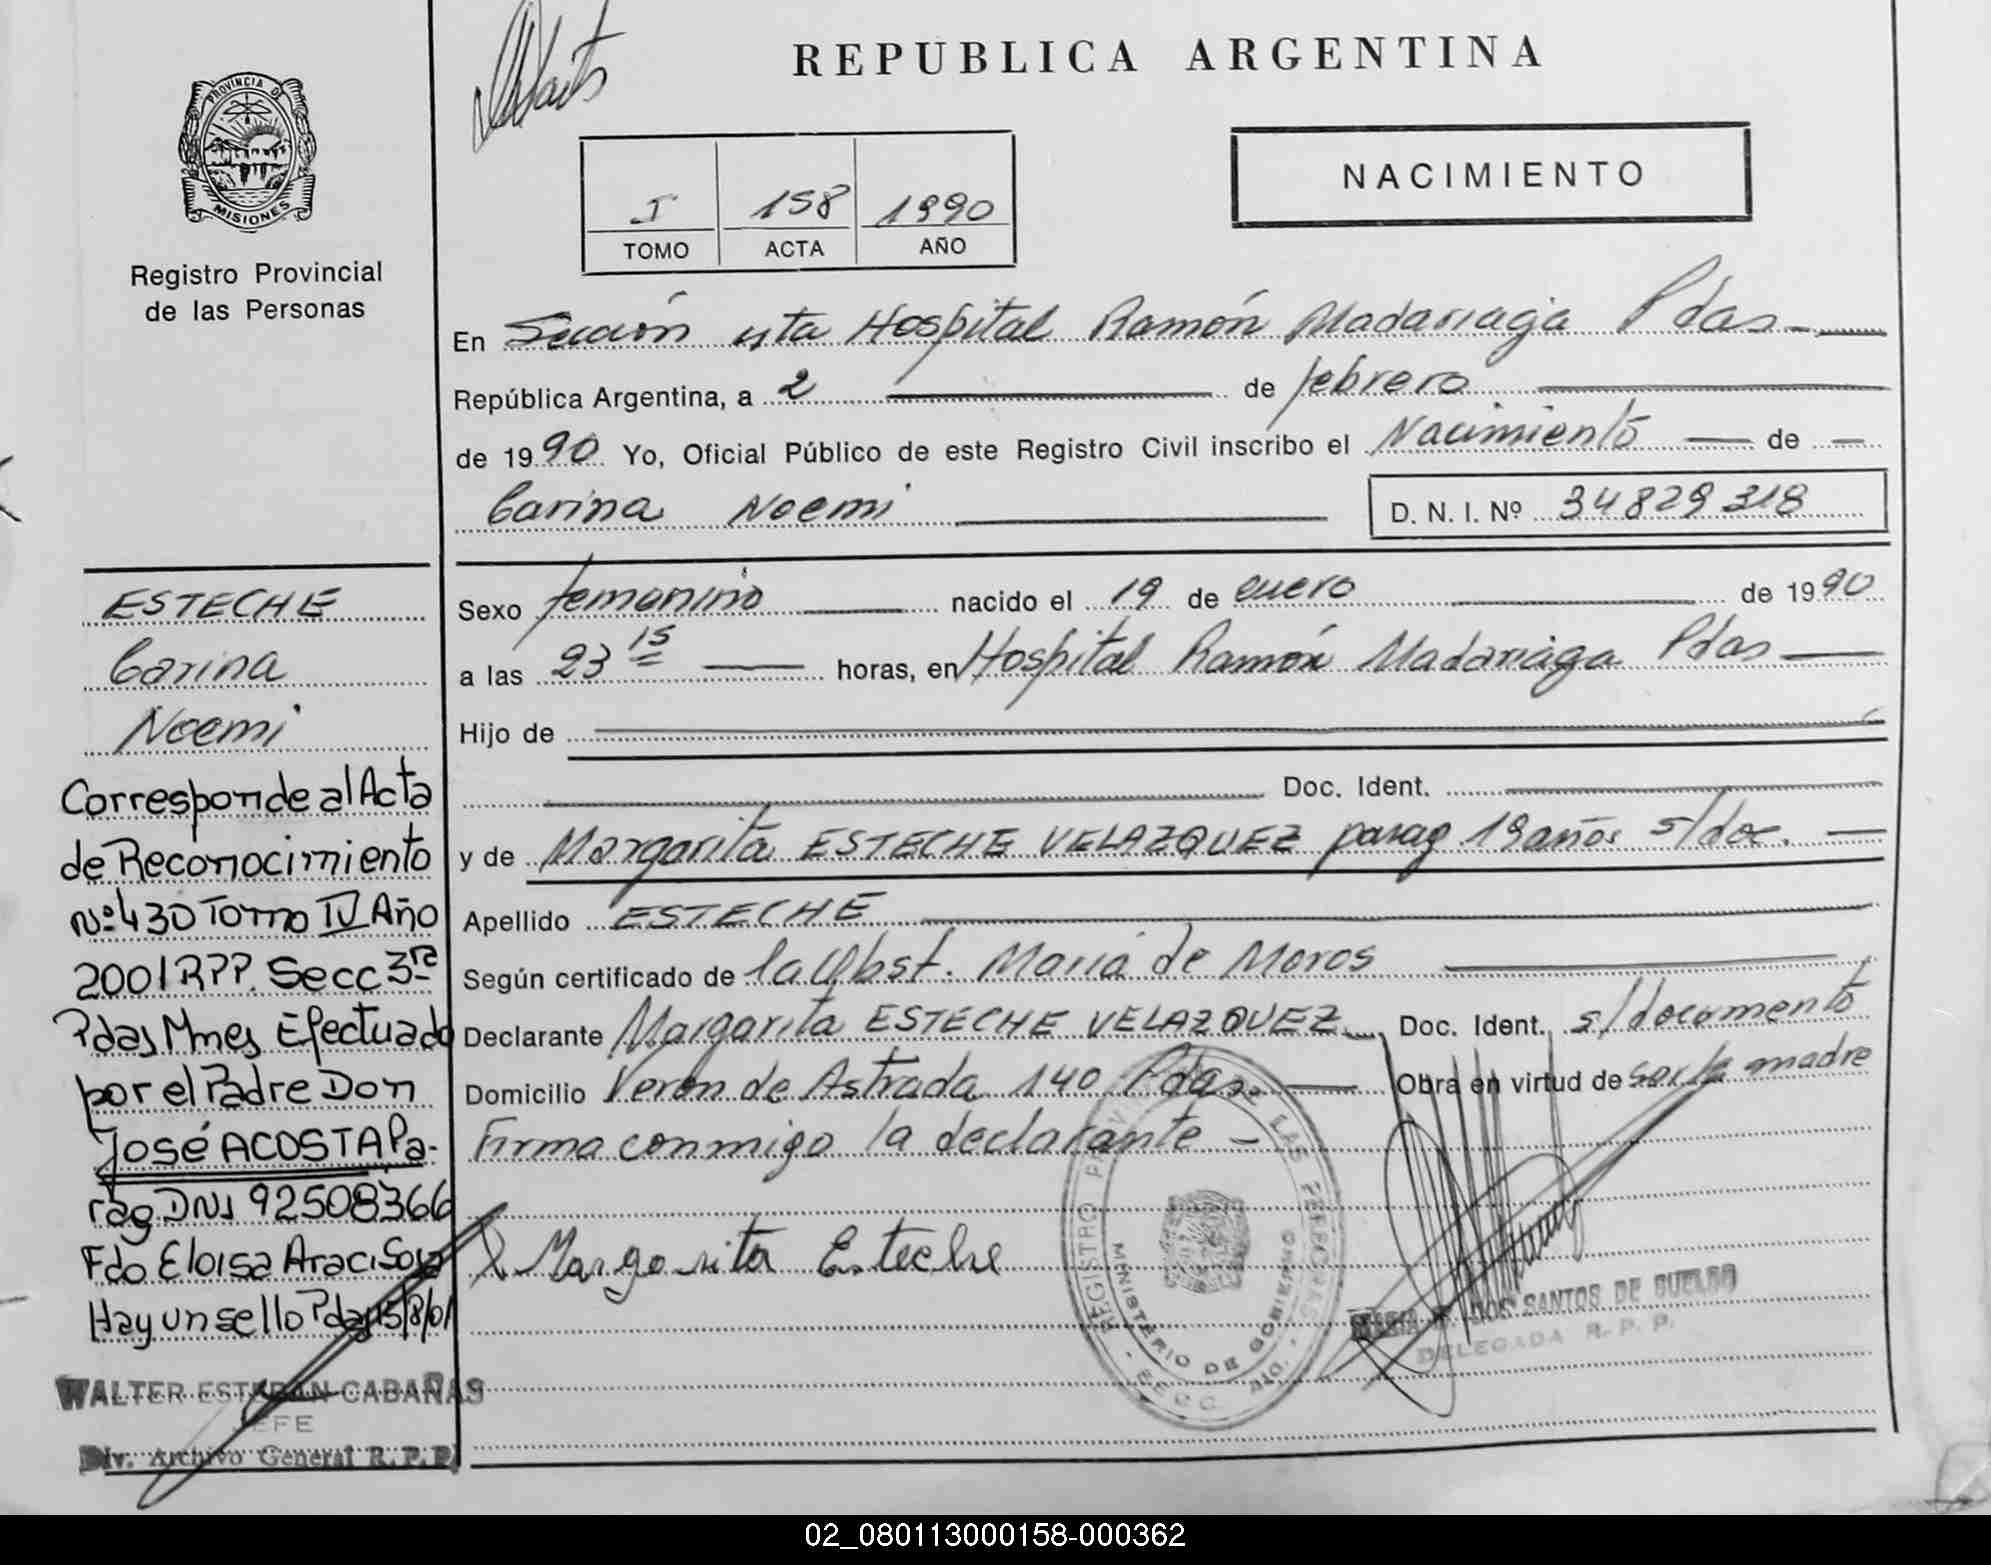 REPUBLICA ARGENTINA
PROVINCIA DE
MISIONES
Registro Provincial
de las Personas
I 158 1990
TOMO ACTA AÑO
NACIMIENTO
En Sección esta Hospital Ramón Madariaga Pdas
República Argentina, a 2 de febrero
de 1990 Yo, Oficial Público de este Registro Civil inscribo el Nacimiento de
Carina Noemi D. N. I. Nº 34829318
Sexo femenino nacido el 19 de enero de 1990
a las 23 15 horas, en Hospital Ramón Madariaga Pdas
Hijo de
Doc. Ident.
y de Margarita ESTECHE VELAZQUEZ parag 19 años s/doc.
Apellido ESTECHE
Según certificado de la Obst. María de Moros
Declarante Margarita ESTECHE VELAZQUEZ Doc. Ident. s/documento
Domicilio Veron de Astrada 140 Pdas. Obra en virtud de ser la madre
Firma conmigo la declarante –
Margarita Esteche
REGISTRO PROVINCIAL DE LAS PERSONAS
MINISTERIO DE GOBIERNO
DOS SANTOS DE SUELDO
DELEGADA R. P. P.
ESTECHE
Carina
Noemi
Corresponde al Acta
de Reconocimiento
Nº 430 Tomo IV Año
2001 RPP. Secc 3ra
Pdas Mnes Efectuado
por el Padre Don
José ACOSTA Pa-
rag DNI 92508366
Fdo Eloisa Araci Sosa
Hay un sello Pdas 15/8/01
WALTER ESTEBAN CABAÑAS
JEFE
Div. Archivo General R. P. P.
02_080113000158-000362